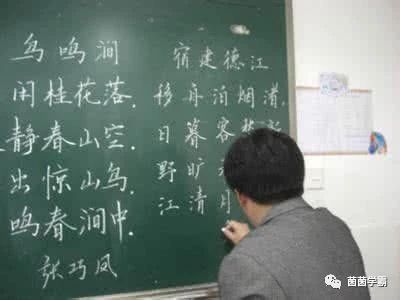 鸟鸣涧
闲桂花落.
静春山空.
出惊山鸟.
鸣春涧中.
张巧凤
宿建德江
移舟泊烟渚,
日暮客
野旷
江清月
茵茵学霸